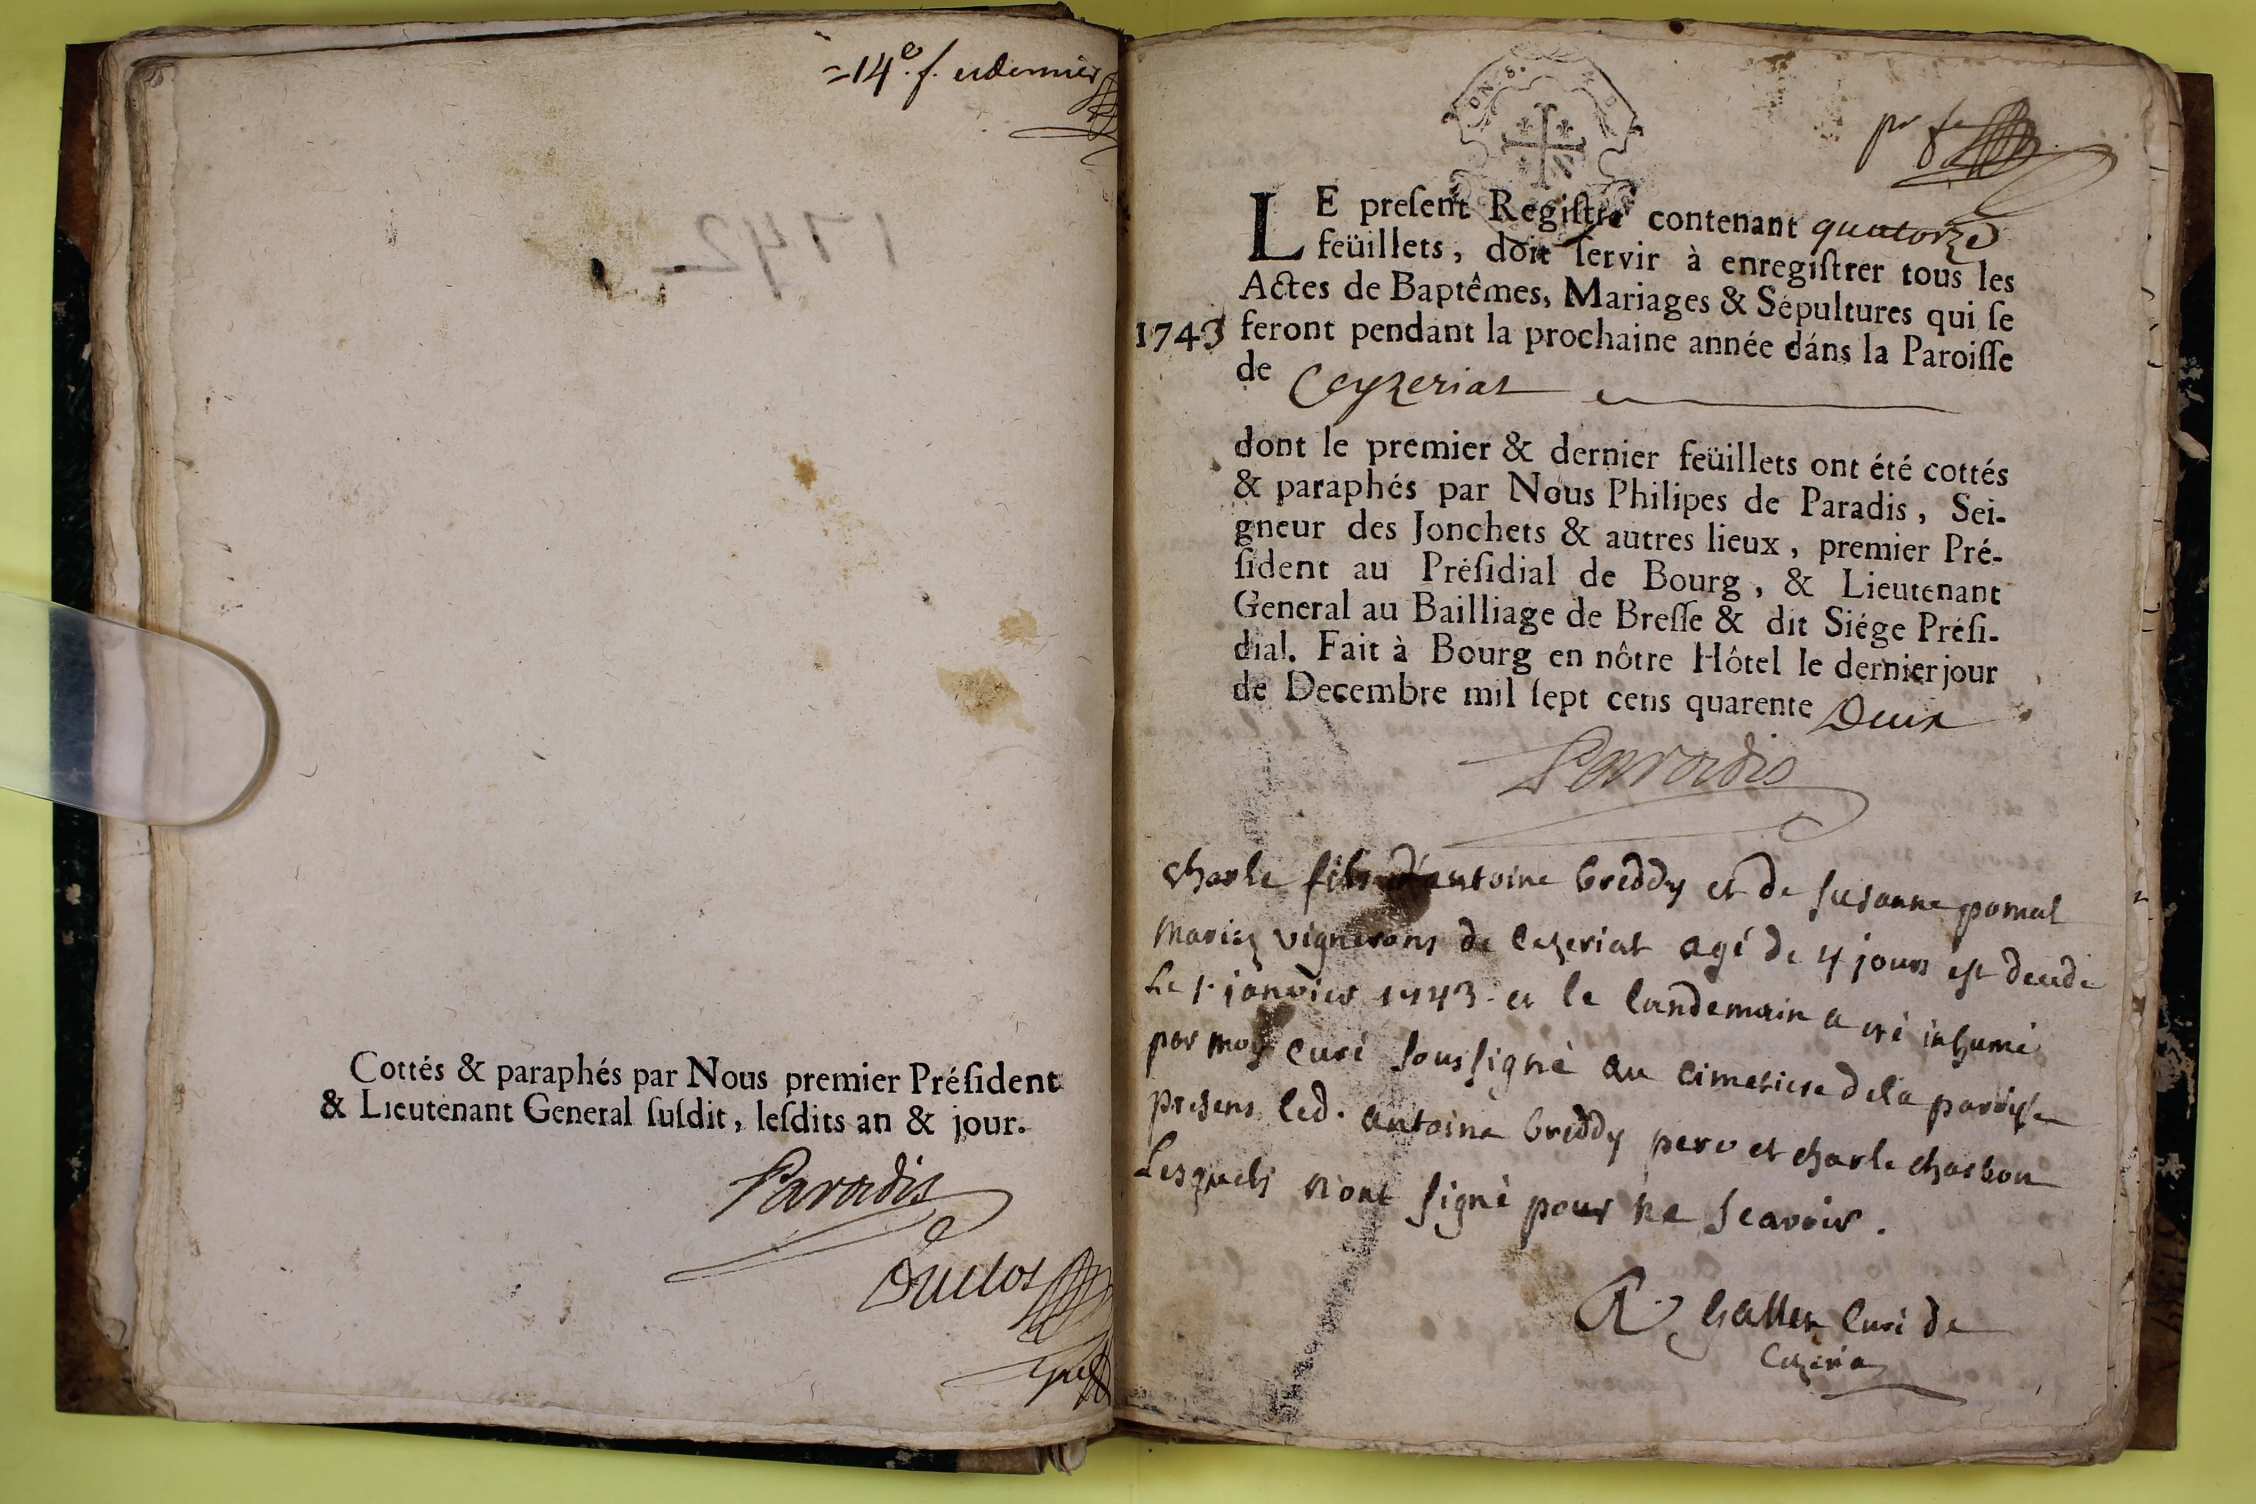 =14e. f. et dernier
1742
Cottés & paraphés par Nous premier Président
& Lieutenant General ſuſdit, leſdits an & jour.
Paradis
Duclos
pr f
LE preſent Regiſtre contenant quatorze
feüillets, doit ſervir à enregiſtrer tous les
Actes de Baptêmes, Mariages & Sépultures qui ſe
1743 feront pendant la prochaine année dans la Paroiſſe
de Ceyzeriat
dont le premier & dernier feüillets ont été cottés
& paraphés par Nous Philipes de Paradis, Sei-
gneur des Jonchets & autres lieux, premier Pré-
ſident au Préſidial de Bourg, & Lieutenant
General au Bailliage de Breſſe & dit Siége Préſi-
dial. Fait à Bourg en nôtre Hôtel le dernier jour
de Decembre mil ſept cens quarente Deux
Paradis
Charle fils d'antoine breddy et de susanne pomat
mariez vignerons de Cezeriat agé de 4 jours est decedé
Le 1. janvier 1743. et le landemain a eté inhumé
par moy curé soussigné au cimetiere de la paroisse
presens led. antoine breddy pere et charle charbon
Lesquels n'ont signé pour ne scavoir.
curé de
Cezeria